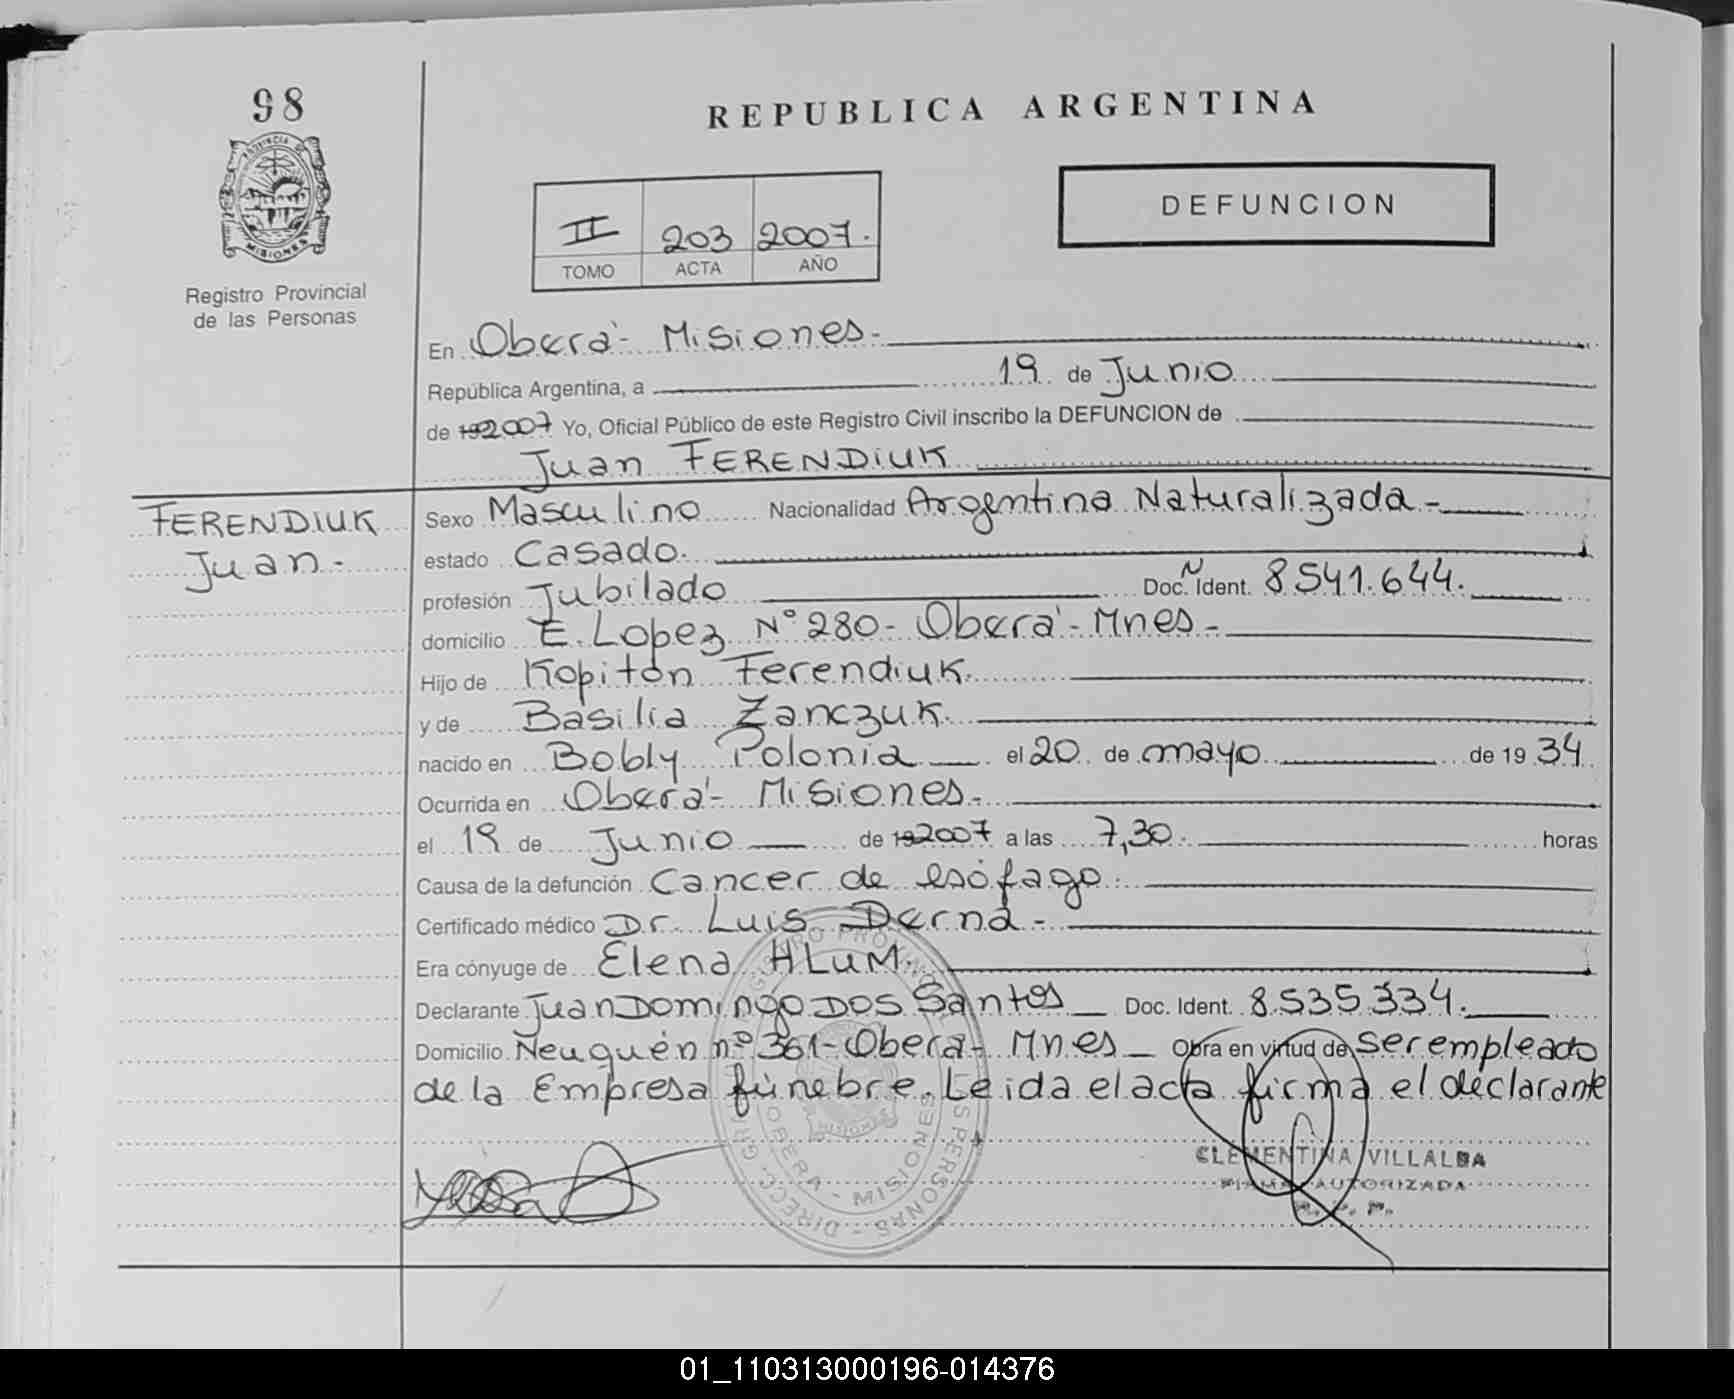 98
REPUBLICA ARGENTINA
PROVINCIA DE
MISIONES
II 203 2007.
TOMO ACTA AÑO
DEFUNCION
Registro Provincial
de las Personas
En Oberá - Misiones.
República Argentina, a 19 de Junio
de 192007 Yo, Oficial Público de este Registro Civil inscribo la DEFUNCION de
Juan FERENDIUK
FERENDIUK
Juan -
Sexo Masculino Nacionalidad Argentina Naturalizada -
estado Casado.
profesión Jubilado Doc. N Ident. 8.541.644.
domicilio E. Lopez N° 280 - Oberá - Mnes -
Hijo de Kopitón Ferendiuk.
y de Basilia Zanczuk.
nacido en Bobly Polonia el 20 de mayo de 19 34
Ocurrida en Oberá - Misiones.
el 19 de Junio de 192007 a las 7,30. horas
Causa de la defunción Cancer de esófago.
Certificado médico Dr. Luis Derna -
Era cónyuge de Elena HLUM.
Declarante Juan Domingo DOS Santos Doc. Ident. 8.535.334.
Domicilio Neuquén nº 361 - Oberá - Mnes Obra en virtud de ser empleado
de la Empresa fúnebre. Leida el acta firma el declarante
OBERA - MISIONES
CLEMENTINA VILLALBA
FIRMA AUTORIZADA
R. P. P.
01_110313000196-014376